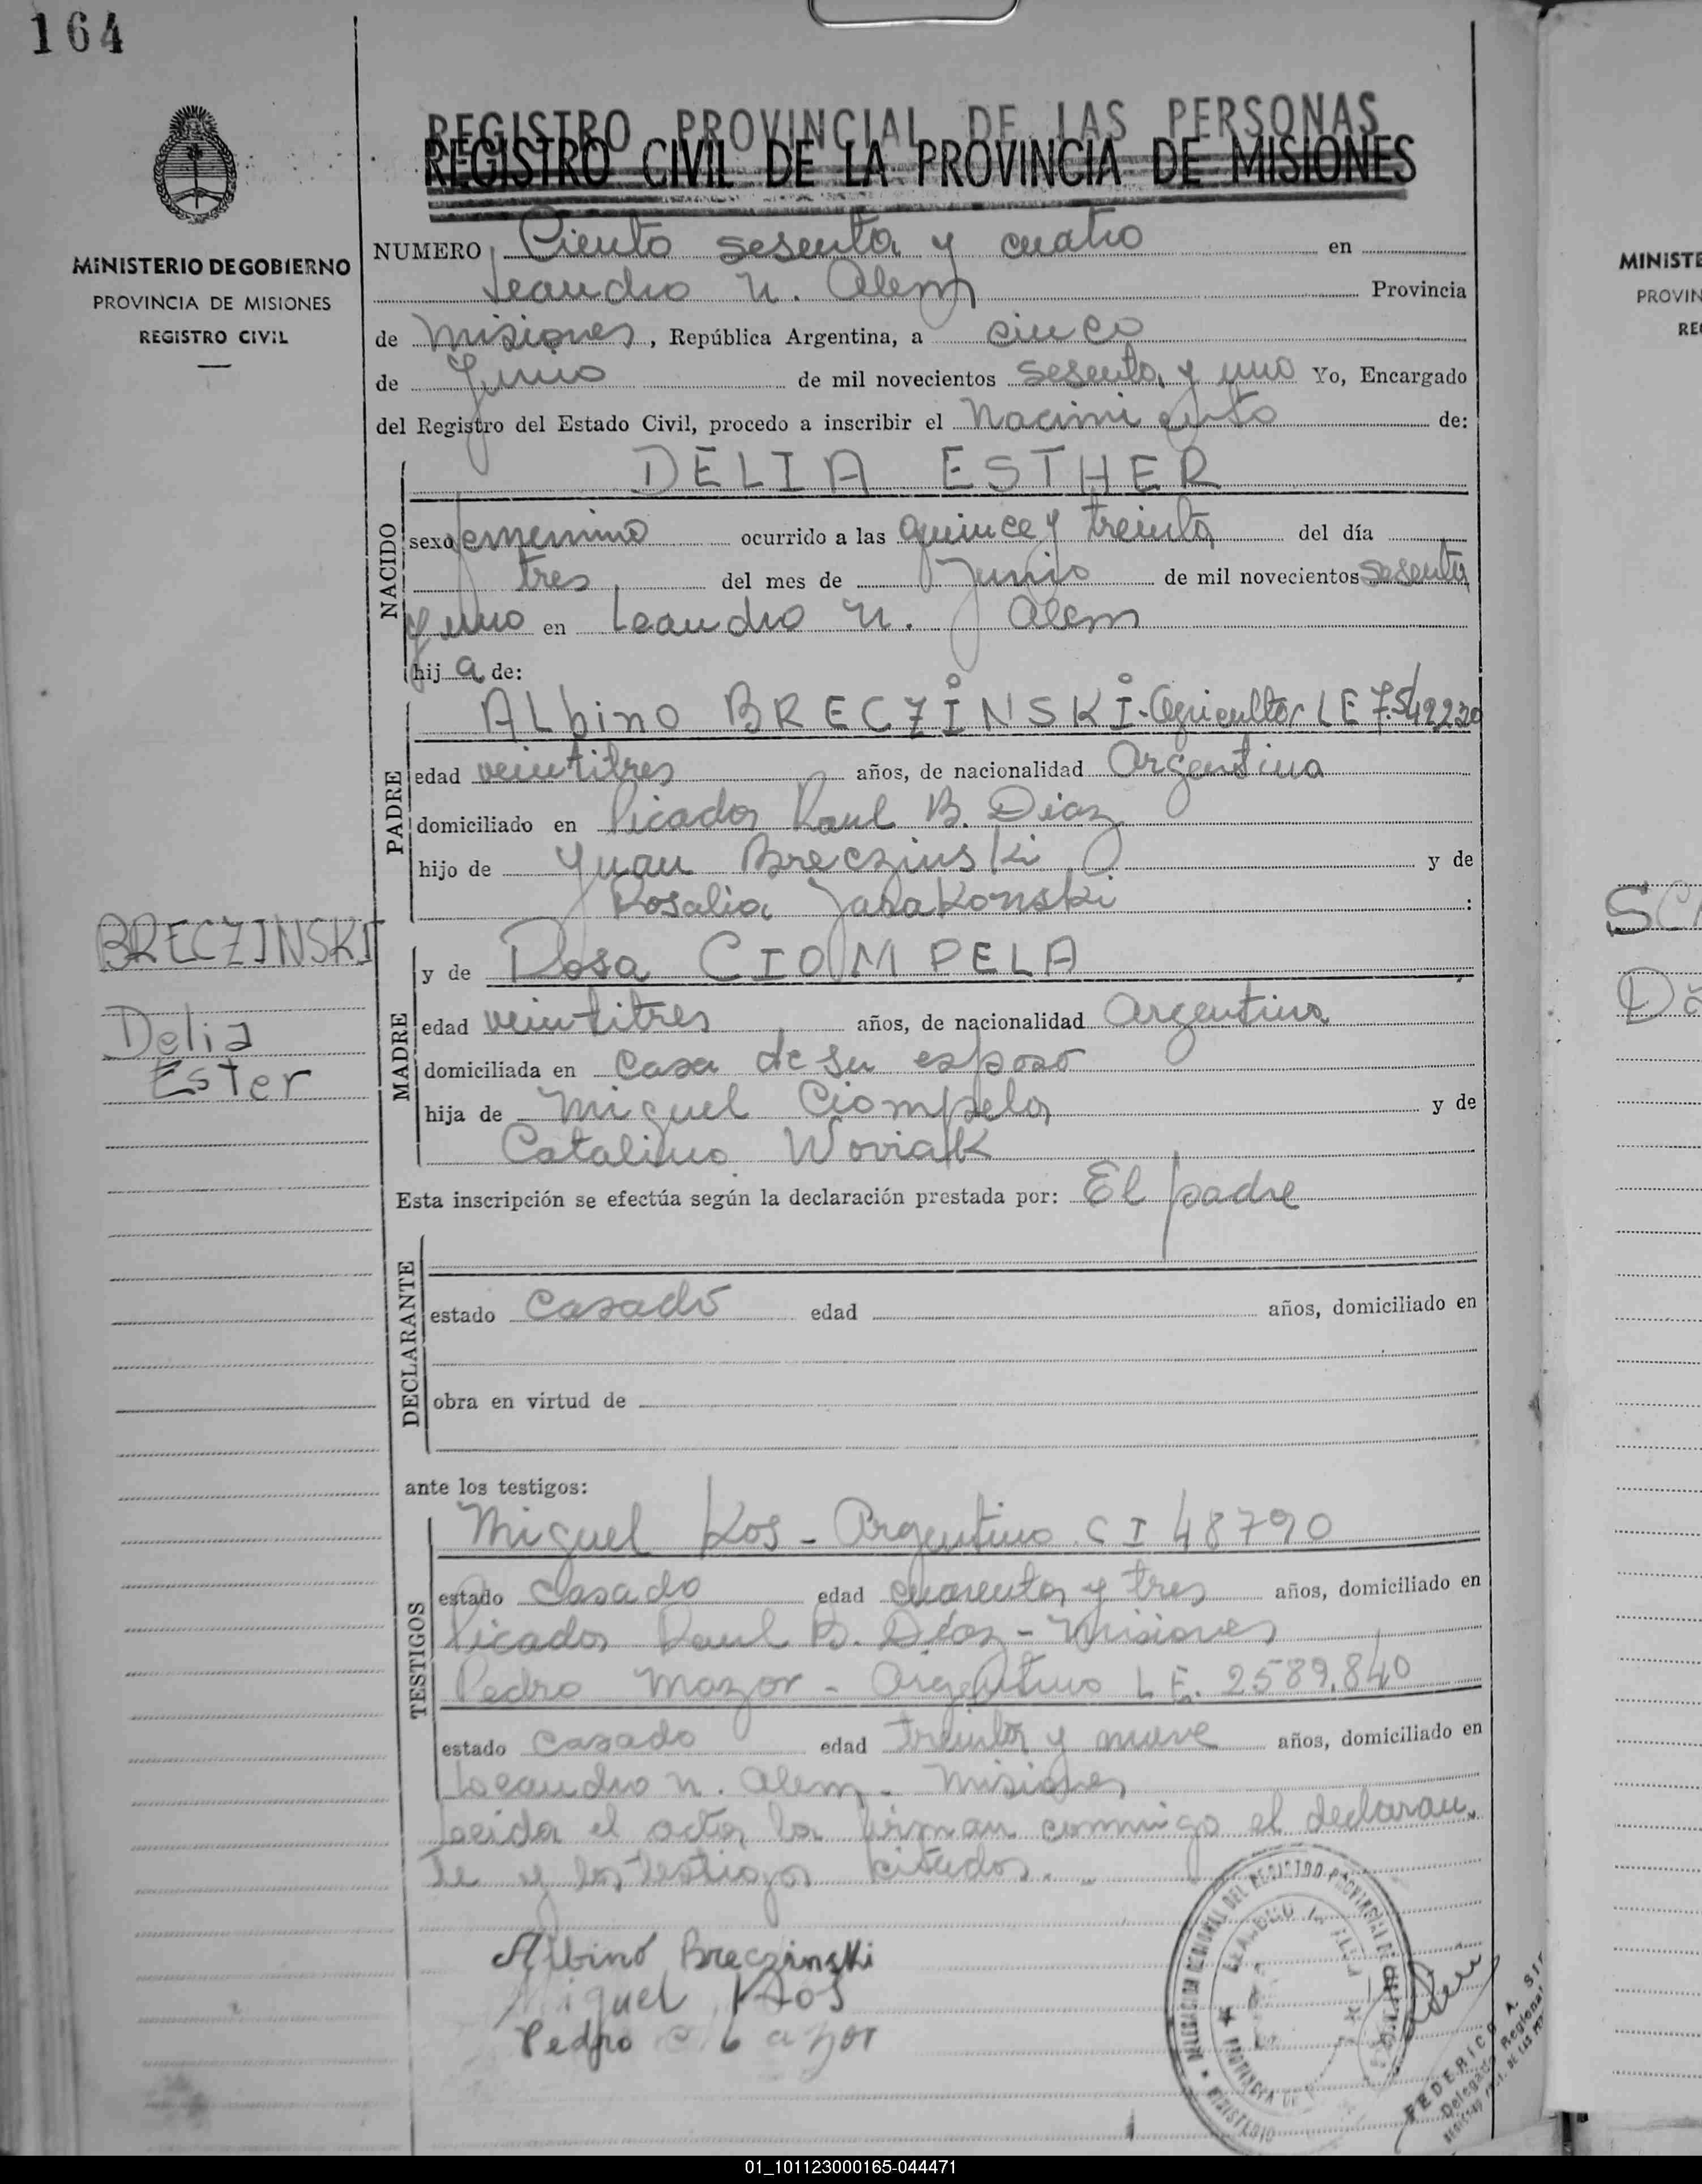 164
MINISTERIO DE GOBIERNO
PROVINCIA DE MISIONES
REGISTRO CIVIL
REGISTRO PROVINCIAL DE LAS PERSONAS
REGISTRO CIVIL DE LA PROVINCIA DE MISIONES
NUMERO Ciento sesenta y cuatro en
Leandro N. Alem Provincia
de Misiones, República Argentina, a cinco
de Junio de mil novecientos sesenta y uno Yo, Encargado
del Registro del Estado Civil, procedo a inscribir el Nacimiento de:
DELIA ESTHER
NACIDO
sexo femenino ocurrido a las quince y treinta del día
tres del mes de Junio de mil novecientos sesenta
y uno en Leandro N. Alem
hija de:
PADRE
Albino BRECZINSKI - Agricultor LE 7.549230
edad veintitres años, de nacionalidad Argentina
domiciliado en Picada Raul B. Diaz
hijo de Juan Breczinski y de
Rosalia Jarakonski :
BRECZINSKI
Delia
Ester
MADRE
y de Rosa CIOMPELA
edad veintitres años, de nacionalidad Argentina
domiciliada en casa de su esposo
hija de Miguel Ciompela y de
Catalina Woviak
Esta inscripción se efectúa según la declaración prestada por: El padre
DECLARANTE
estado casado edad años, domiciliado en
obra en virtud de
ante los testigos:
TESTIGOS
Miguel Kos - Argentino C I 48790
estado casado edad cuarenta y tres años, domiciliado en
Picada Raul B. Diaz - Misiones
Pedro Mazor - Argentino L E. 2589.840
estado casado edad treinta y nueve años, domiciliado en
Leandro N. Alem - Misiones
Leida el acta la firman conmigo el declaran
te y los testigos citados.
Albino Breczinski
Miguel Kos
Pedro
DELEGACION REGIONAL DEL REGISTRO PROVINCIAL DE
MINISTERIO
PROVINCIA DE
FEDERICO A.
Delegado Regional
MINISTE
PROVIN
RE
SC
01_101123000165-044471